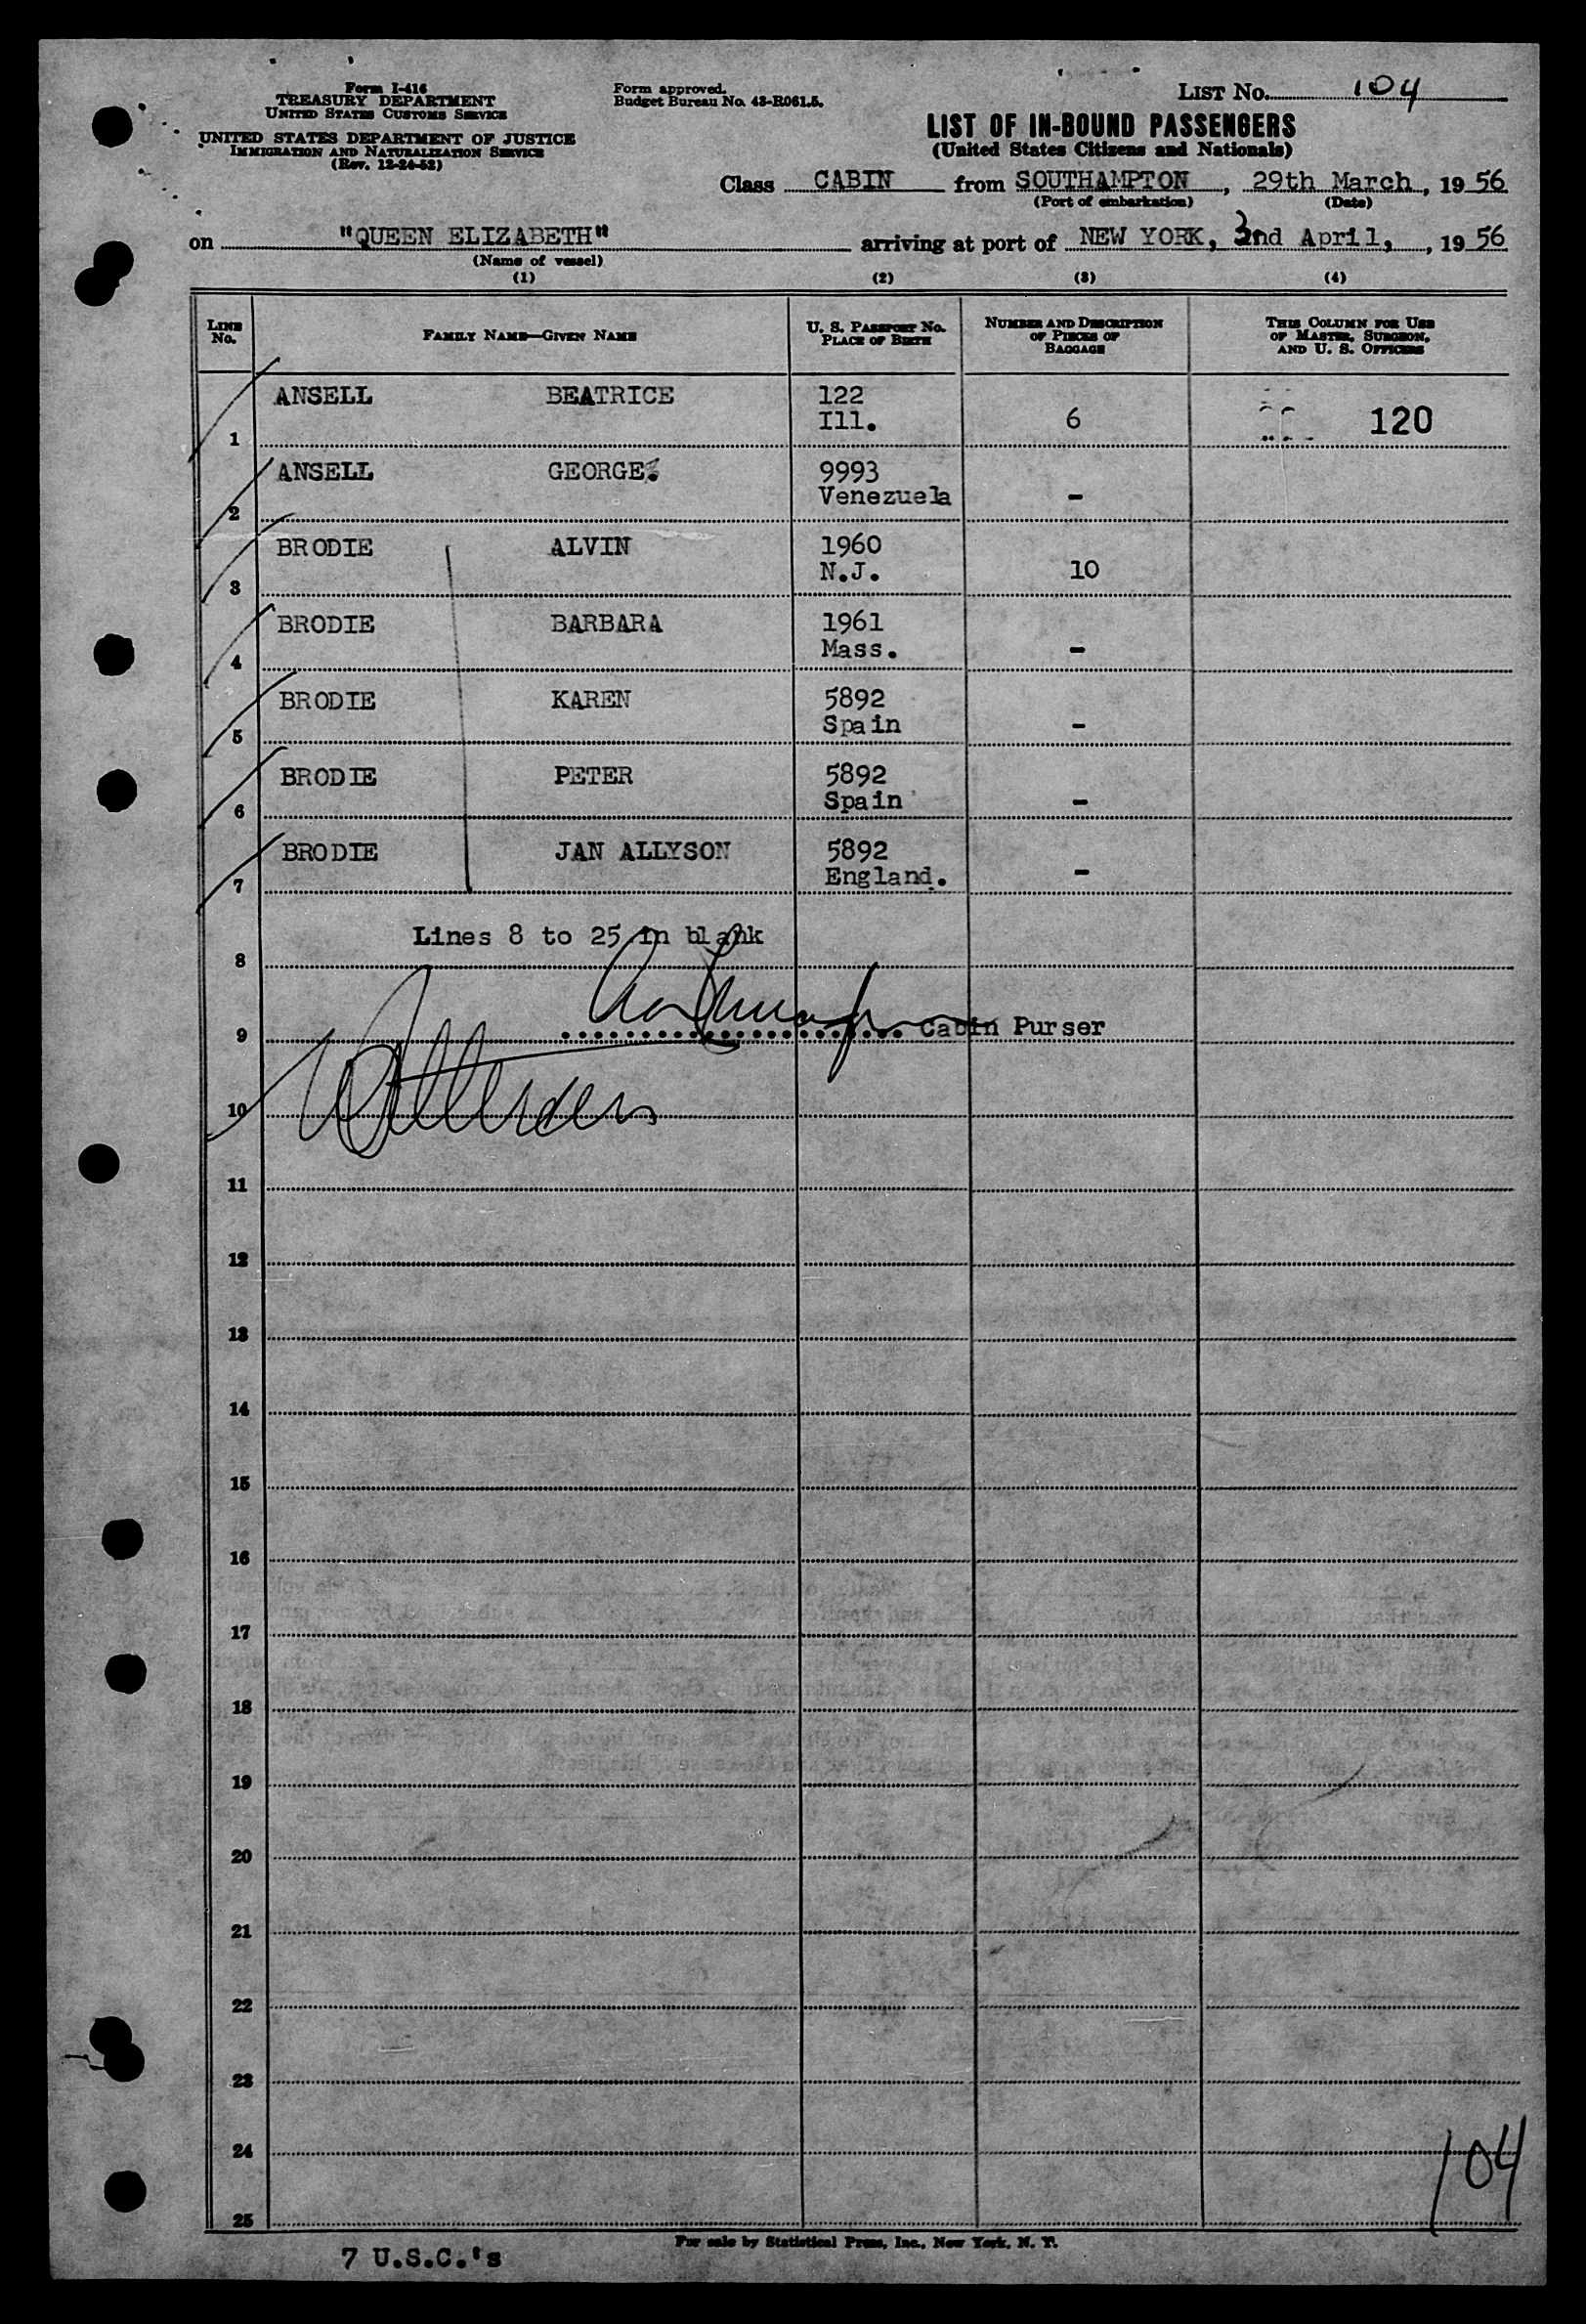 Form I-416
TREASURY DEPARTMENT
UNITED STATES CUSTOMS SERVICE
UNITED STATES DEPARTMENT OF JUSTICE
IMMIGRATION AND NATURALIZATION SERVICE
(Rev. 12-24-52)
Form approved.
Budget Bureau No. 43-R061.5.
LIST No. 104
LIST OF IN-BOUND PASSENGERS
(United States Citizens and Nationals)
Class CABIN from SOUTHAMPTON, 29th March, 19 56
(Port of embarkation) (Date)
on "QUEEN ELIZABETH" arriving at port of NEW YORK, 3nd April, , 19 56
(Name of vessel)
(1) (2) (3) (4)
LINE No. FAMILY NAME—GIVEN NAME U. S. PASSPORT No. PLACE OF BIRTH NUMBER AND DESCRIPTION OF PIECES OF BAGGAGE THIS COLUMN FOR USE OF MASTER, SURGEON, AND U. S. OFFICERS
ANSELL BEATRICE 122
1 Ill. 6 120
ANSELL GEORGE. 9993
2 Venezuela -
BRODIE ALVIN 1960
3 N.J. 10
BRODIE BARBARA 1961
4 Mass. -
BRODIE KAREN 5892
5 Spain -
BRODIE PETER 5892
6 Spain -
BRODIE JAN ALLYSON 5892
7 England. -
Lines 8 to 25 in blank
8
9 Cabin Purser
10
11
12
13
14
15
16
17
18
19
20
21
22
23
24
104
25
For sale by Statistical Press, Inc., New York, N. Y.
7 U.S.C.'s